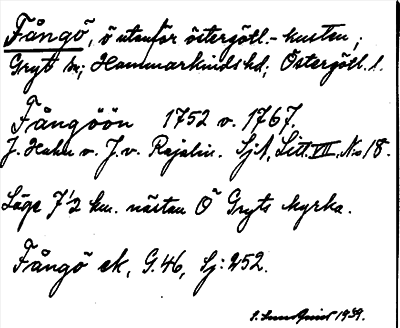 Fångö, ö utanför östergötl.-kusten;
Gryt sn; Hammarkinds hd; Östergötl. l.
Fångöön 1752 v. 1767.
J. Hahn v. J. v. Rajalin. SjA, Litt. VII, No 18.
Läge 7½ km. nästan Ö Gryts kyrka.
Fångö ek, G. 46, Sj: 252.
S. Sundqvist 1939.